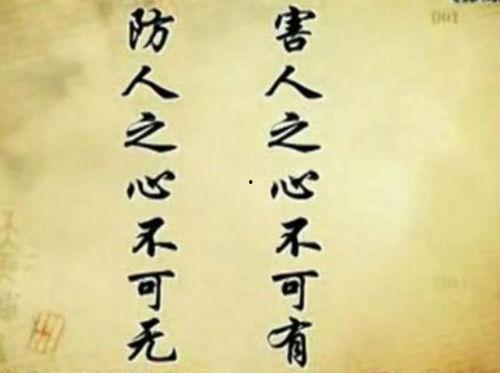 害人之心不可有
防人之心不可无